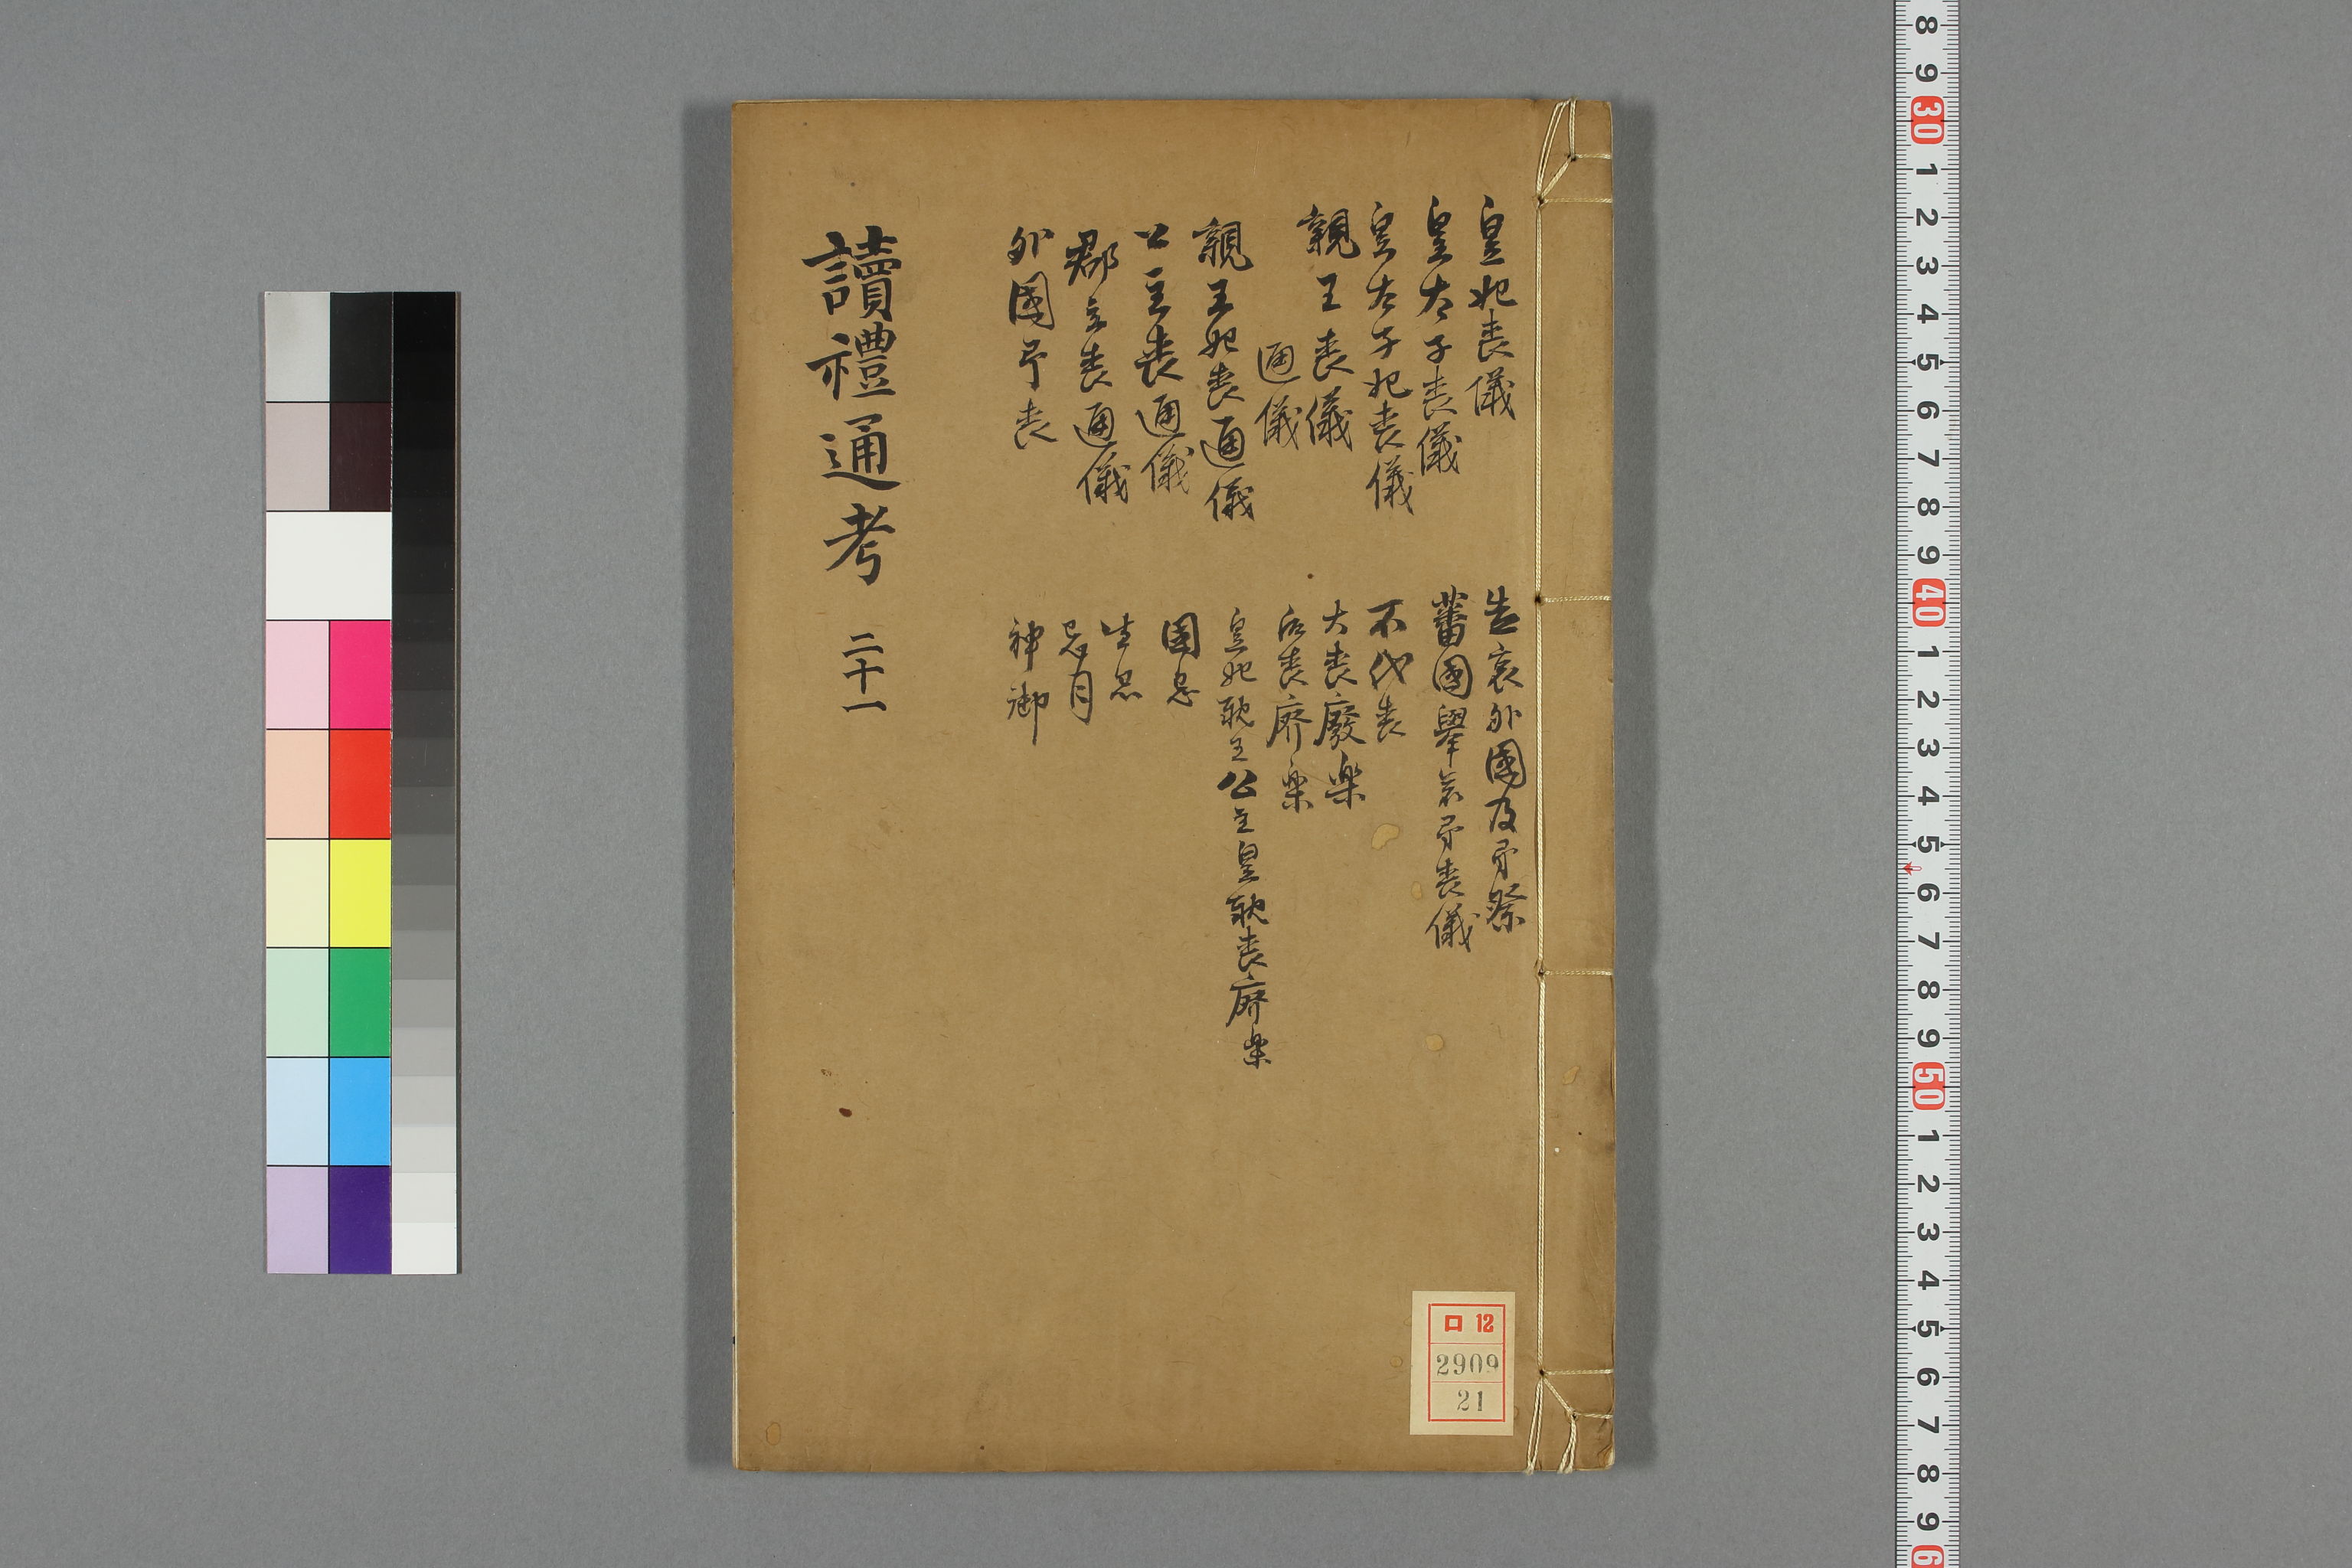 皇妃喪儀
皇太子喪儀
皇太子妃喪儀
親王喪儀
通儀
親王妃喪通儀
公主喪通儀
郡主喪通儀
外國弔喪
告哀外國及弔祭
蕃國舉哀弔喪儀
不伐喪
大喪廢楽
后喪廃楽
皇妃親王公主皇親喪廃楽
國忌
生忌
忌月
神御
讀禮通考 二十一
ロ 12
2909
21
8 9 30 1 2 3 4 5 6 7 8 9 40 1 2 3 4 5 6 7 8 9 50 1 2 3 4 5 6 7 8 9 6